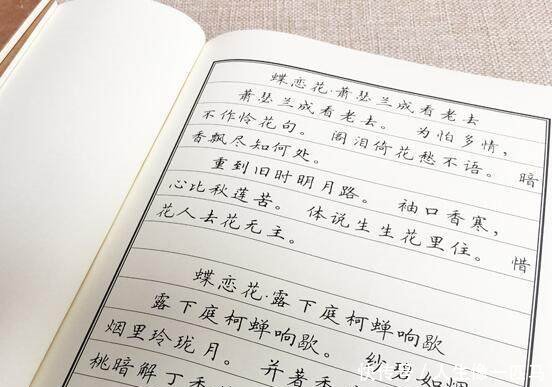 蝶恋花·萧瑟兰成看老去
萧瑟兰成看老去。 为怕多情，
不作怜花句。 阁泪倚花愁不语。 暗
香飘尽知何处。
重到旧时明月路。 袖口香寒，
心比秋莲苦。 体说生生花里住。 惜
花人去花无主。
蝶恋花·露下庭柯蝉响歇
露下庭柯蝉响歇
烟里玲珑月。 并著香
桃暗解丁香